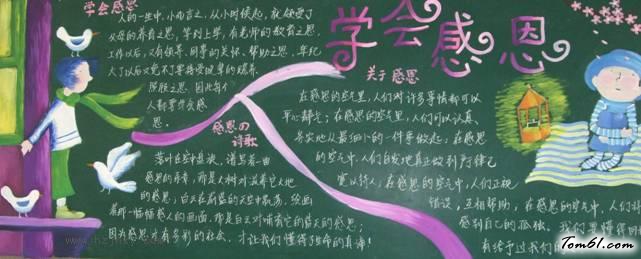 学会感恩
学会感恩
人的一生中,小而言之,从小时候起,就领受了
父母的养育之恩,等到上学,有老师的教育之恩,
工作以后,又有领导、同事的关怀、帮助之恩,年纪
大了以后,又免不了要接受晚辈的赡养、
照顾之恩
人都要学会感
恩。
感恩的
诗歌
落叶在空中盘旋,谱写着一曲
感恩的乐章,那是大树对滋养它大地
的感恩;白云在蔚蓝的天空中飘荡,绘画
着那一幅幅感人的画面,那是白云对哺育它的蓝天的感恩;
因为感恩才会有多彩的社会,才让我们懂得生命的真谛!
关于感恩
在感恩的空气里,人们对许多事情都可以
平心静气;在感恩的空气里,人们可以认真、
务实地从最细小的一件事做起;在感恩
的空气中,人们自发地真正做到严于律己
宽以待人;在感恩的空气中,人们正视
错误,互相帮助;在感恩的空气中,人们
感到自己的孤独。我们要懂得
给予过我们的
Tom61.com